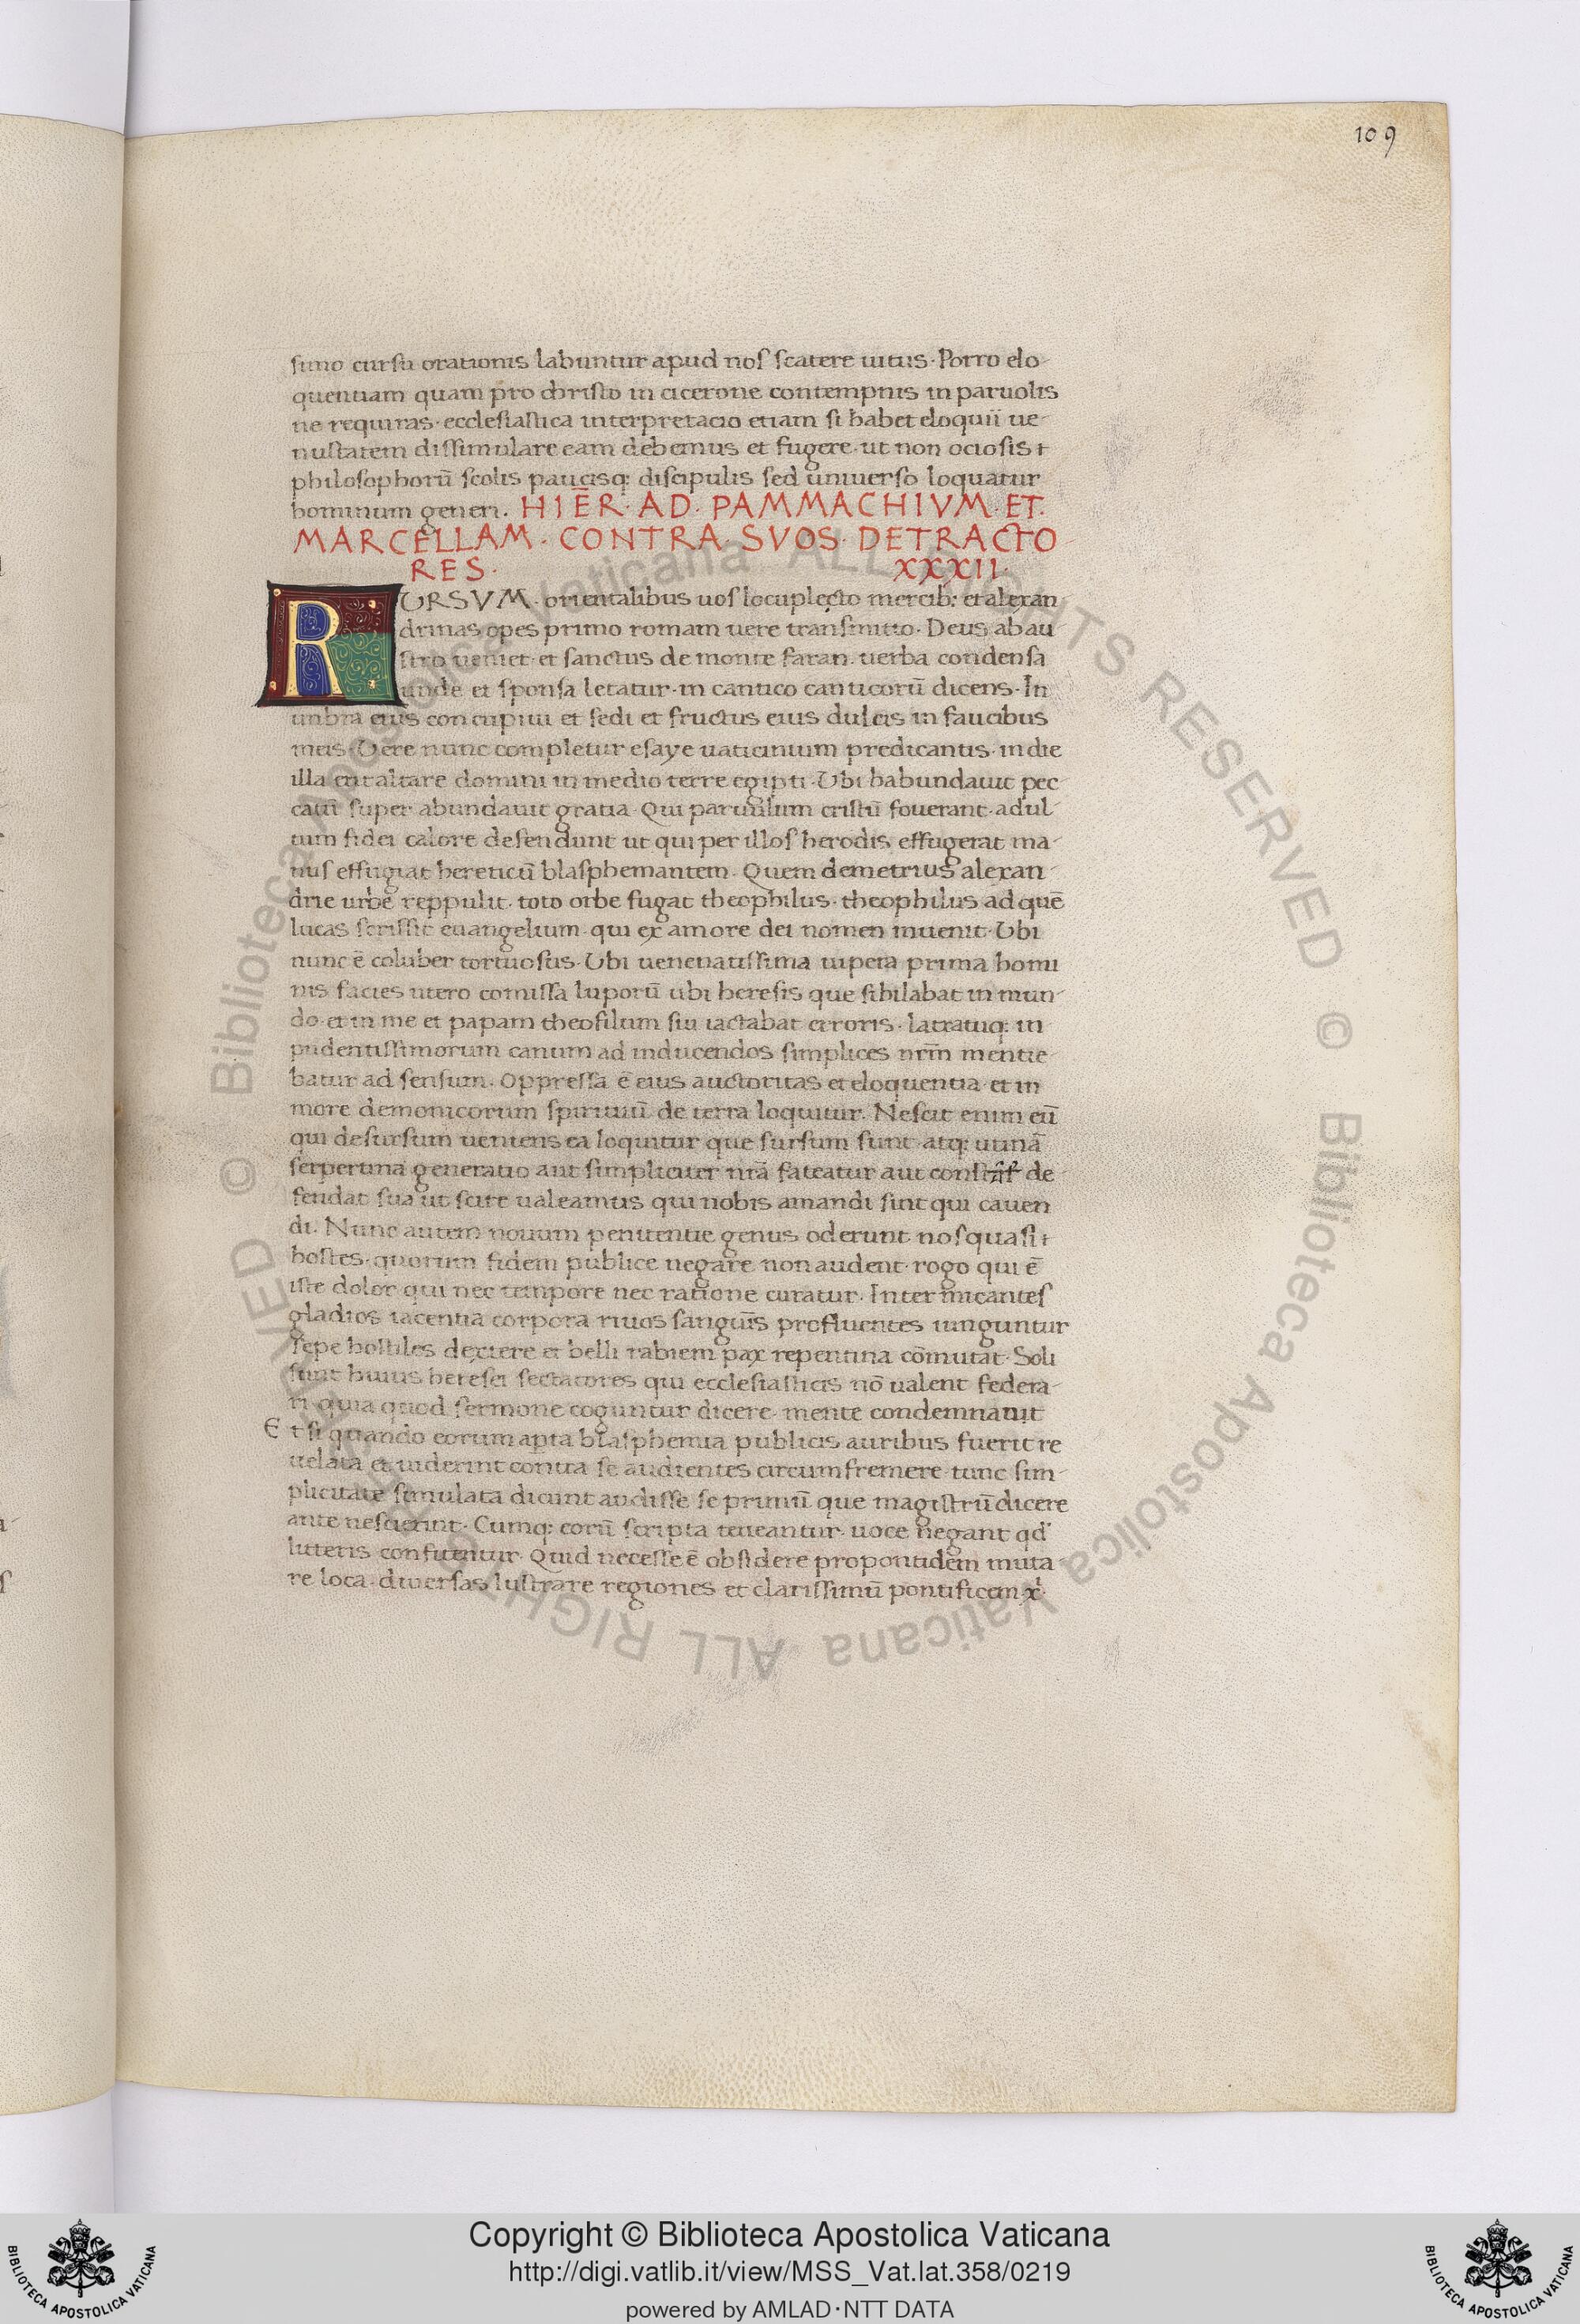 109
simo cursu orationis labuntur apud nos scatere uitiis. Porro elo-
quentiam quam pro christo in cicerone contempnis in paruolis
ne requiras. ecclesiastica interpretacio etiam si habet eloquii ue-
nustatem dissimulare eam debemus et fugere. ut non ociosis
philosophorū scolis paucisq: discipulis sed uniuerso loquatur
hominum generi. HIĒR. AD. PAMMACHIVM. ET.
MARCELLAM. CONTRA. SVOS. DETRACTO-
RES. XXXII.
RURSVM. orientalibus uos locuplecto mercib: et alexan-
drinas opes primo romam uere transmitto. Deus ab au-
stro ueniet. et sanctus de monte faran. uerba condensa
unde et sponsa letatur. in cantico canticorū dicens. In
unbra eius concupiui et sedi et fructus eius dulcis in faucibus
meis. Uere nunc completur esaye uaticinium predicantis. in die
illa erit altare domini in medio terre egipti. Ubi habundauit pec-
catū super abundauit gratia. Qui paruulum cristū fouerant. adul-
tum fidei calore defendunt ut qui per illos herodis effugerat ma-
nus effugiat hereticū blasphemantem. Quem demetrius alexan-
drie urbe reppulit. toto orbe fugat theophilus. theophilus ad quē
lucas scrissit euangelium. qui ex amore dei nomen inuenit. Ubi
nunc ē coluber tortuosus. Ubi uenenatissima uipera prima homi
nis facies utero comissa luporū ubi heresis que sibilabat in mun-
do. et in me et papam theofilum sui iactabat erroris. latratuq: in
pudentissimorum canum ad inducendos simplices nr̄m mentie-
batur ad sensum. Oppressa ē eius auctoritas et eloquentia. et in
more demonicorum spirituū de terra loquitur. Nescit enim eū
qui desursum ueniens ea loquitur que sursum sunt. atq: utinā
serpertina generatio aut simpliciter nr̄a fateatur aut de
fendat sua ut scire ualeamus qui nobis amandi sint qui cauen
di. Nunc autem nouum penitentie genus oderunt nos quasi
hostes. quorum fidem publice negare non audent. rogo qui ē
iste dolor qui nec tempore nec ratione curatur. Inter micantes
gladios iacentia corpora riuos sanguīs profluentes iunguntur
sepe hostiles dextere et belli rabiem pax repentina cōmutat. Soli
sunt huius heresei sectatores qui ecclesiasticis nō ualent federa-
ri. quia quod sermone coguntur dicere. mente condemnauit
Et si quando eorum apta blasphemia publicis auribus fuerit re
uelata et uiderint contra se audientes circumfremere. tunc sim-
plicitate simulata dicunt audisse se primū que magistrū dicere
ante nescierint. Cumq: eorū scripta teneantur. uoce negant qd'
litteris confitentur. Quid necesse ē obsidere propontidem muta-
re loca. diuersas lustrare regiones et clarissimū pontificem
© Biblioteca Apostolica Vaticana ALL RIGHTS RESERVED © Biblioteca Apostolica Vaticana ALL RIGHTS RESERVED
Copyright © Biblioteca Apostolica Vaticana
http://digi.vatlib.it/view/MSS_Vat.lat.358/0219
powered by AMLAD·NTT DATA
BIBLIOTECA APOSTOLICA VATICANA
BIBLIOTECA APOSTOLICA VATICANA